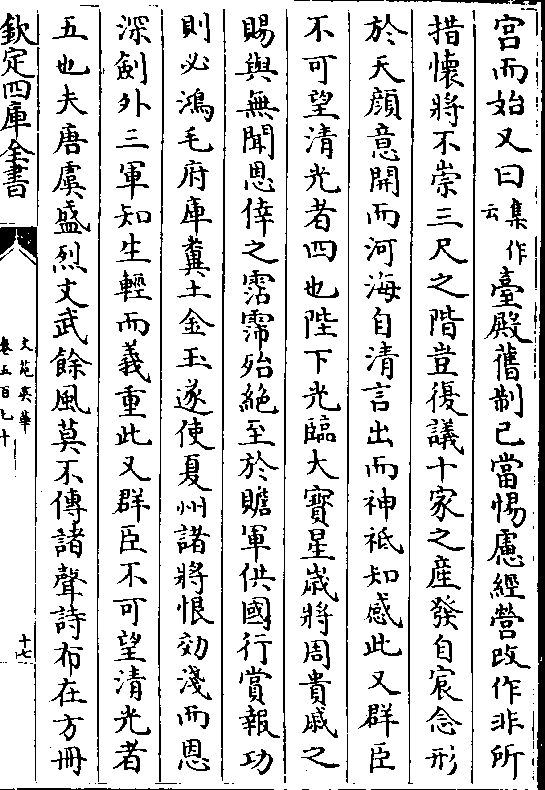 宫而始又曰集作云臺殿舊制已當惕慮經營改作非所
措懷將不崇三尺之階豈復議十家之産發自宸念形
於天顔意開而河海自清言出而神祗知感此又群臣
不可望清光者四也陛下光臨大寳星歲將周貴戚之
賜與無聞恩倖之霑霈殆絶至於贍軍供國行賞報功
則必鴻毛府庫糞土金玉遂使夏州諸將恨効淺而恩
深劍外三軍知生輕而義重此又群臣不可望清光者
五也夫唐虞盛烈文武餘風莫不傳諸聲詩布在方冊
欽定四庫全書
文苑英華
卷五百九十
十七